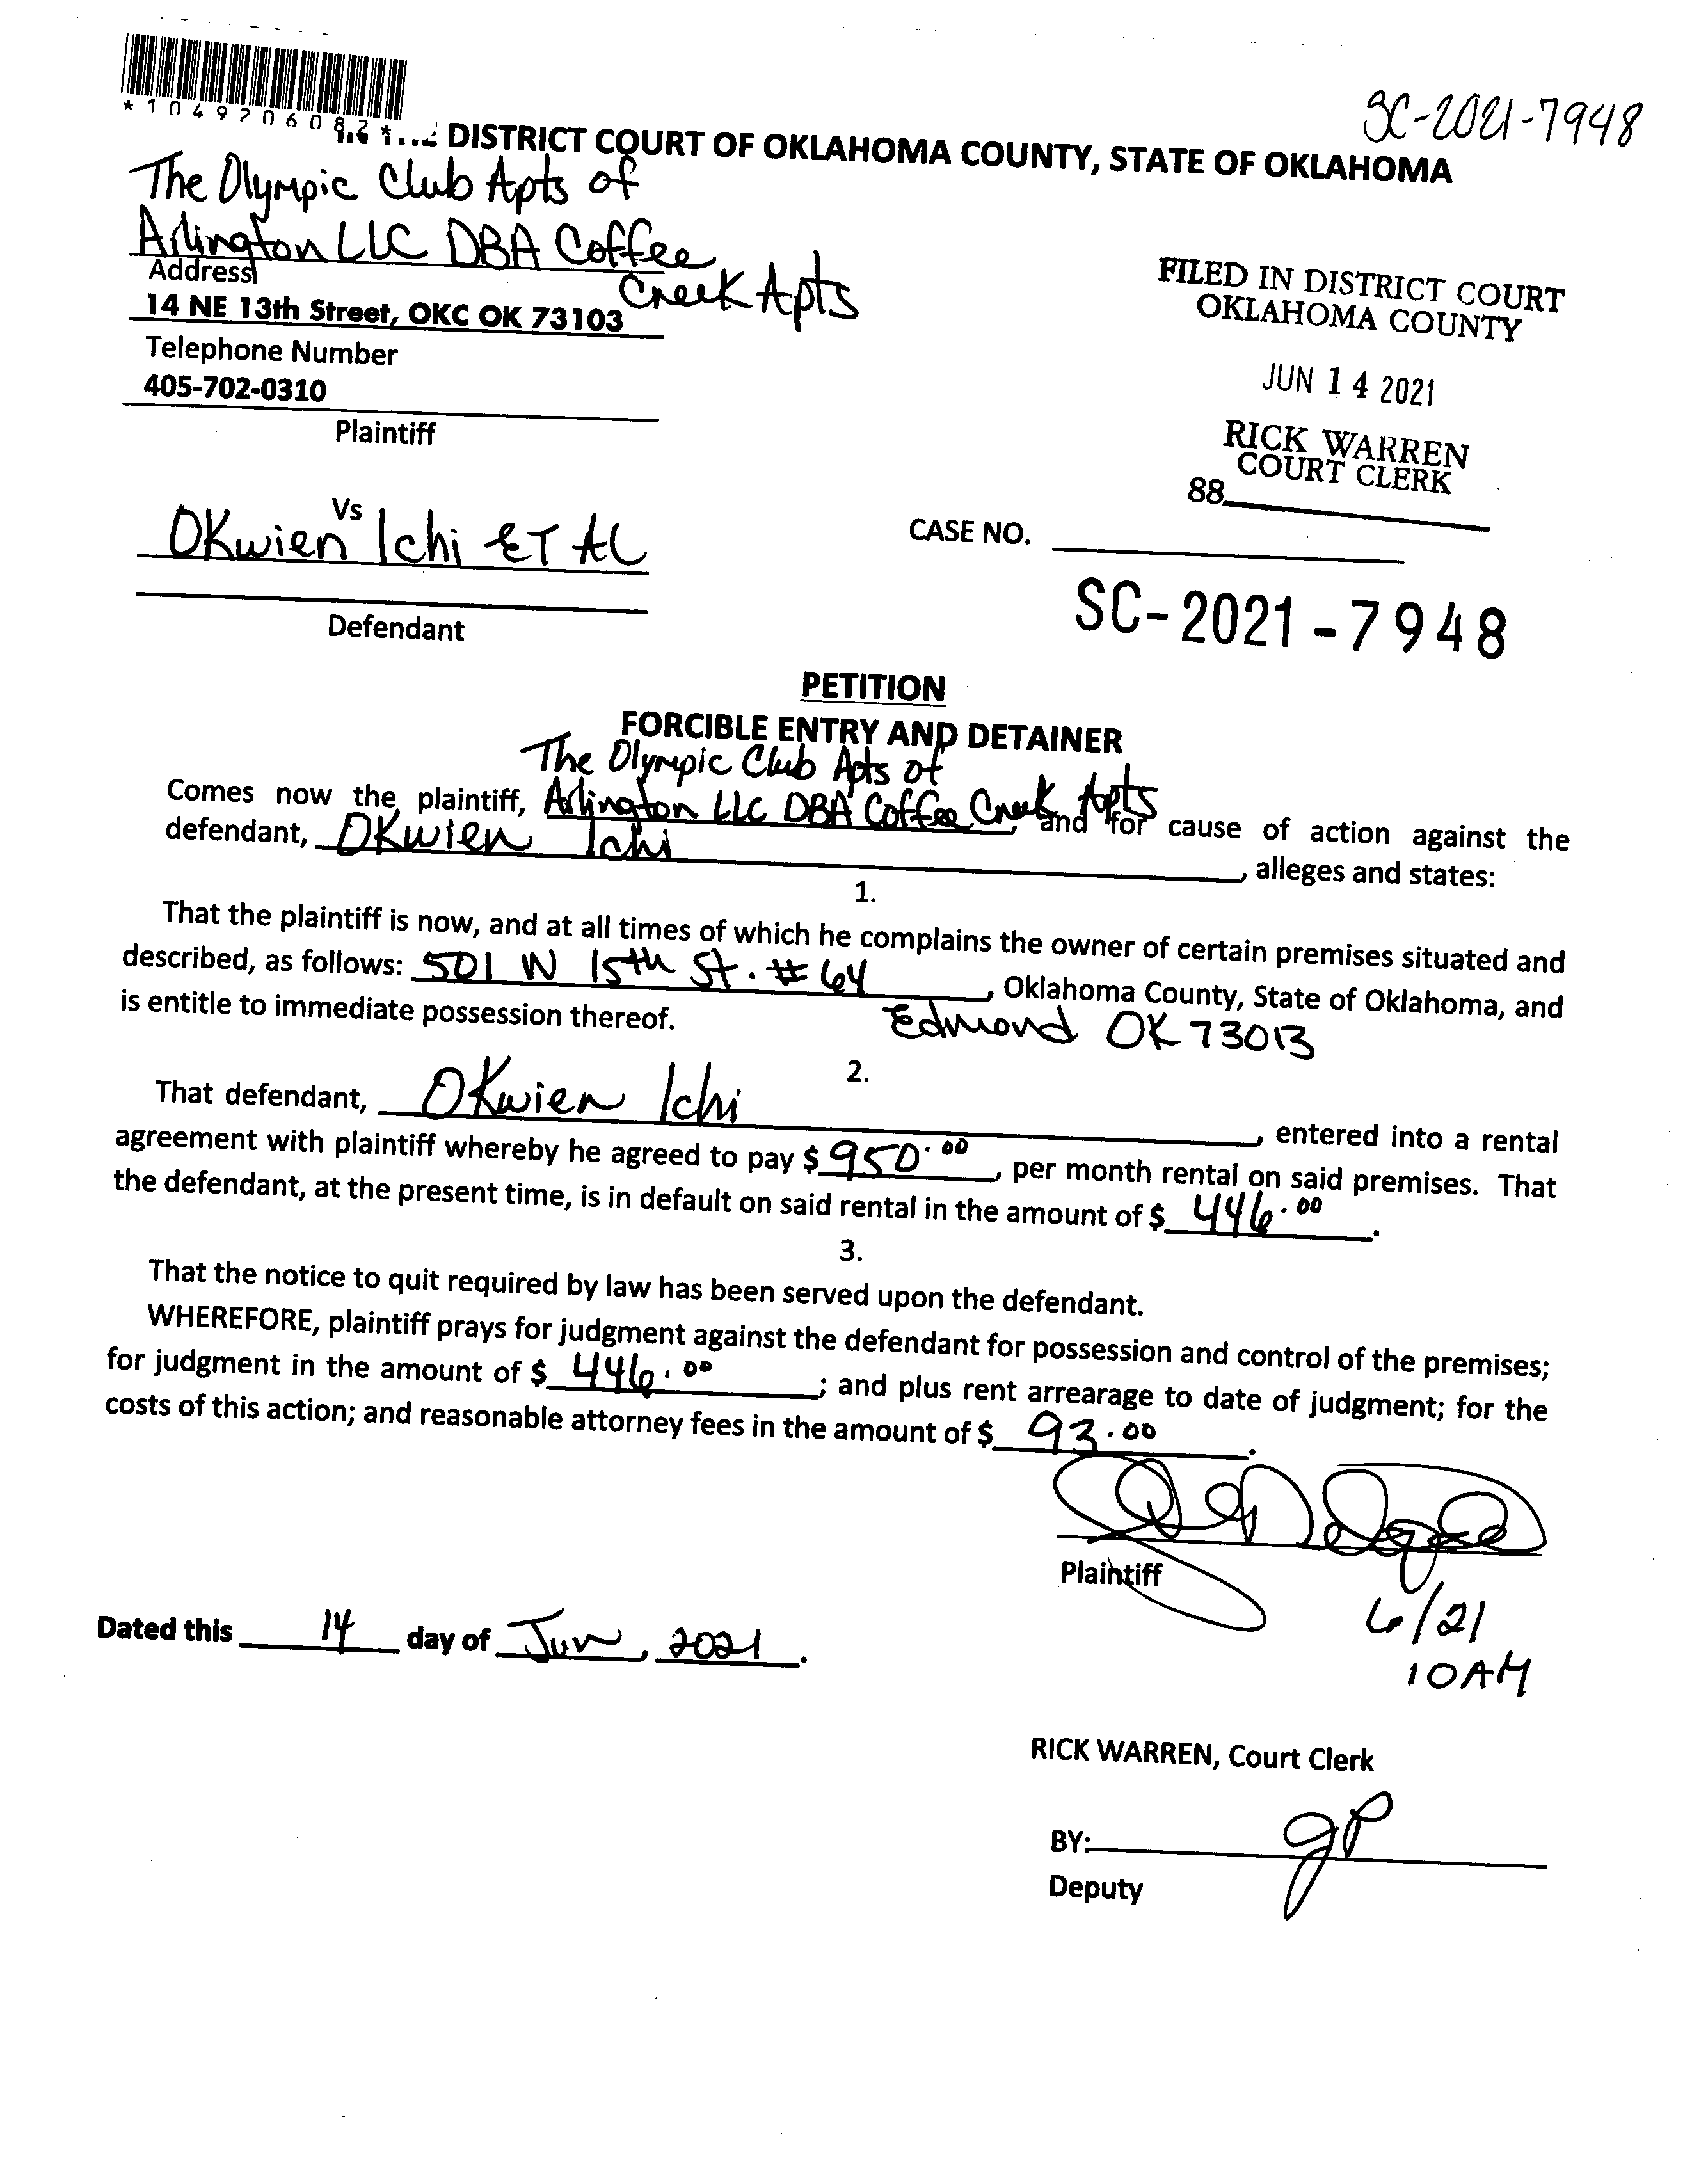 SC-2021-7948
*1049206082*
DISTRICT COURT OF OKLAHOMA COUNTY, STATE OF OKLAHOMA
The Olympic Club Apts of
Arlington LLC DBA Coffee
Creek Apts
Address
14 NE 13th Street, OKC OK 73103
Telephone Number
405-702-0310
Plaintiff
FILED IN DISTRICT COURT
OKLAHOMA COUNTY
JUN 14 2021
RICK WARREN
COURT CLERK
88
Vs
OKwien Ichi ET AL
Defendant
CASE NO.
SC-2021-7948
PETITION
FORCIBLE ENTRY AND DETAINER
The Olympic Club Apts of
Comes now the plaintiff, Arlington LLC DBA Coffee Creek Apts, and for cause of action against the
defendant, OKwien Ichi, alleges and states:
1.
That the plaintiff is now, and at all times of which he complains the owner of certain premises situated and
described, as follows: 501 W 15th St. #64, Oklahoma County, State of Oklahoma, and
is entitle to immediate possession thereof. Edmond OK 73013
2.
That defendant, OKwien Ichi, entered into a rental
agreement with plaintiff whereby he agreed to pay $950.00, per month rental on said premises. That
the defendant, at the present time, is in default on said rental in the amount of $446.00.
3.
That the notice to quit required by law has been served upon the defendant.
WHEREFORE, plaintiff prays for judgment against the defendant for possession and control of the premises;
for judgment in the amount of $446.00; and plus rent arrearage to date of judgment; for the
costs of this action; and reasonable attorney fees in the amount of $93.00.
Plaintiff
6/21
10AM
Dated this 14 day of Jun, 2021.
RICK WARREN, Court Clerk
BY: gP
Deputy